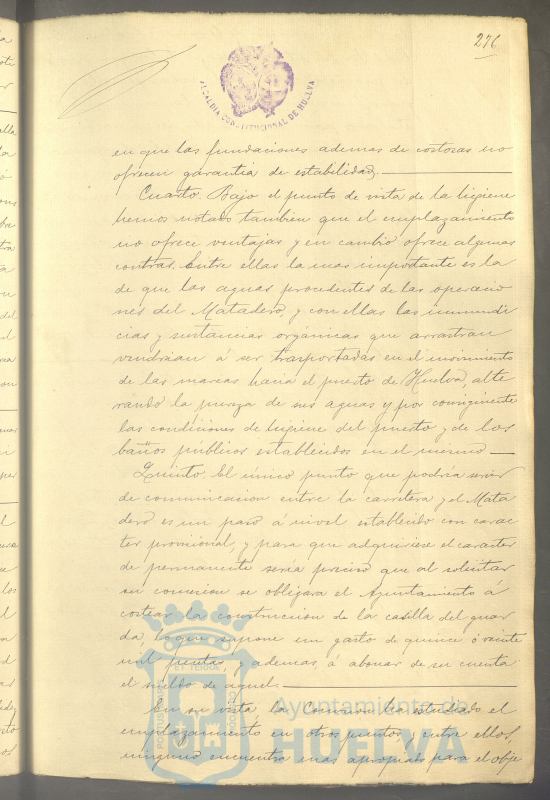 276
ALCALDIA CONSTITUCIONAL DE HUELVA
en que las fundaciones ademas de costosas no
ofrecen garantia de estabilidad.
Cuarto. Bajo el punto de vista de la higiene
hemos notado tambien que el emplazamiento
no ofrece ventajas y en cambio ofrece algunas
contras. Entre ellas la mas importante es la
de que las aguas procedentes de las operacio
nes del Matadero, y con ellas las inmundi
cias y sustancias orgánicas que arrastran
vendrian á ser trasportadas en el movimiento
de las mareas hacia el puerto de Huelva, alte
rando la pureza de sus aguas y por consiguiente
las condiciones de higiene del puerto y de los
baños públicos establecidos en el mismo
Quinto. El único punto que podría servir
de comunicacion entre la carretera y el Mata
dero es un paso á nivel establecido con carac
ter provisional, y para que adquiriese el caracter
de permanente seria preciso que al solicitar
su concesion se obligara el Ayuntamiento á
costear la construccion de la casilla del guar
da, lo que supone un gasto de quince ó veinte
mil pesetas, y ademas, á abonar de su cuenta
el sueldo de aquel.
En su vista la Comision ha estudiado el
emplazamiento en otros puntos y entre ellos
ninguno encuentra mas apropiado para el obje
PORTUS MARIS ET TERRAE CUSTODIA
Ayuntamiento de
HUELVA